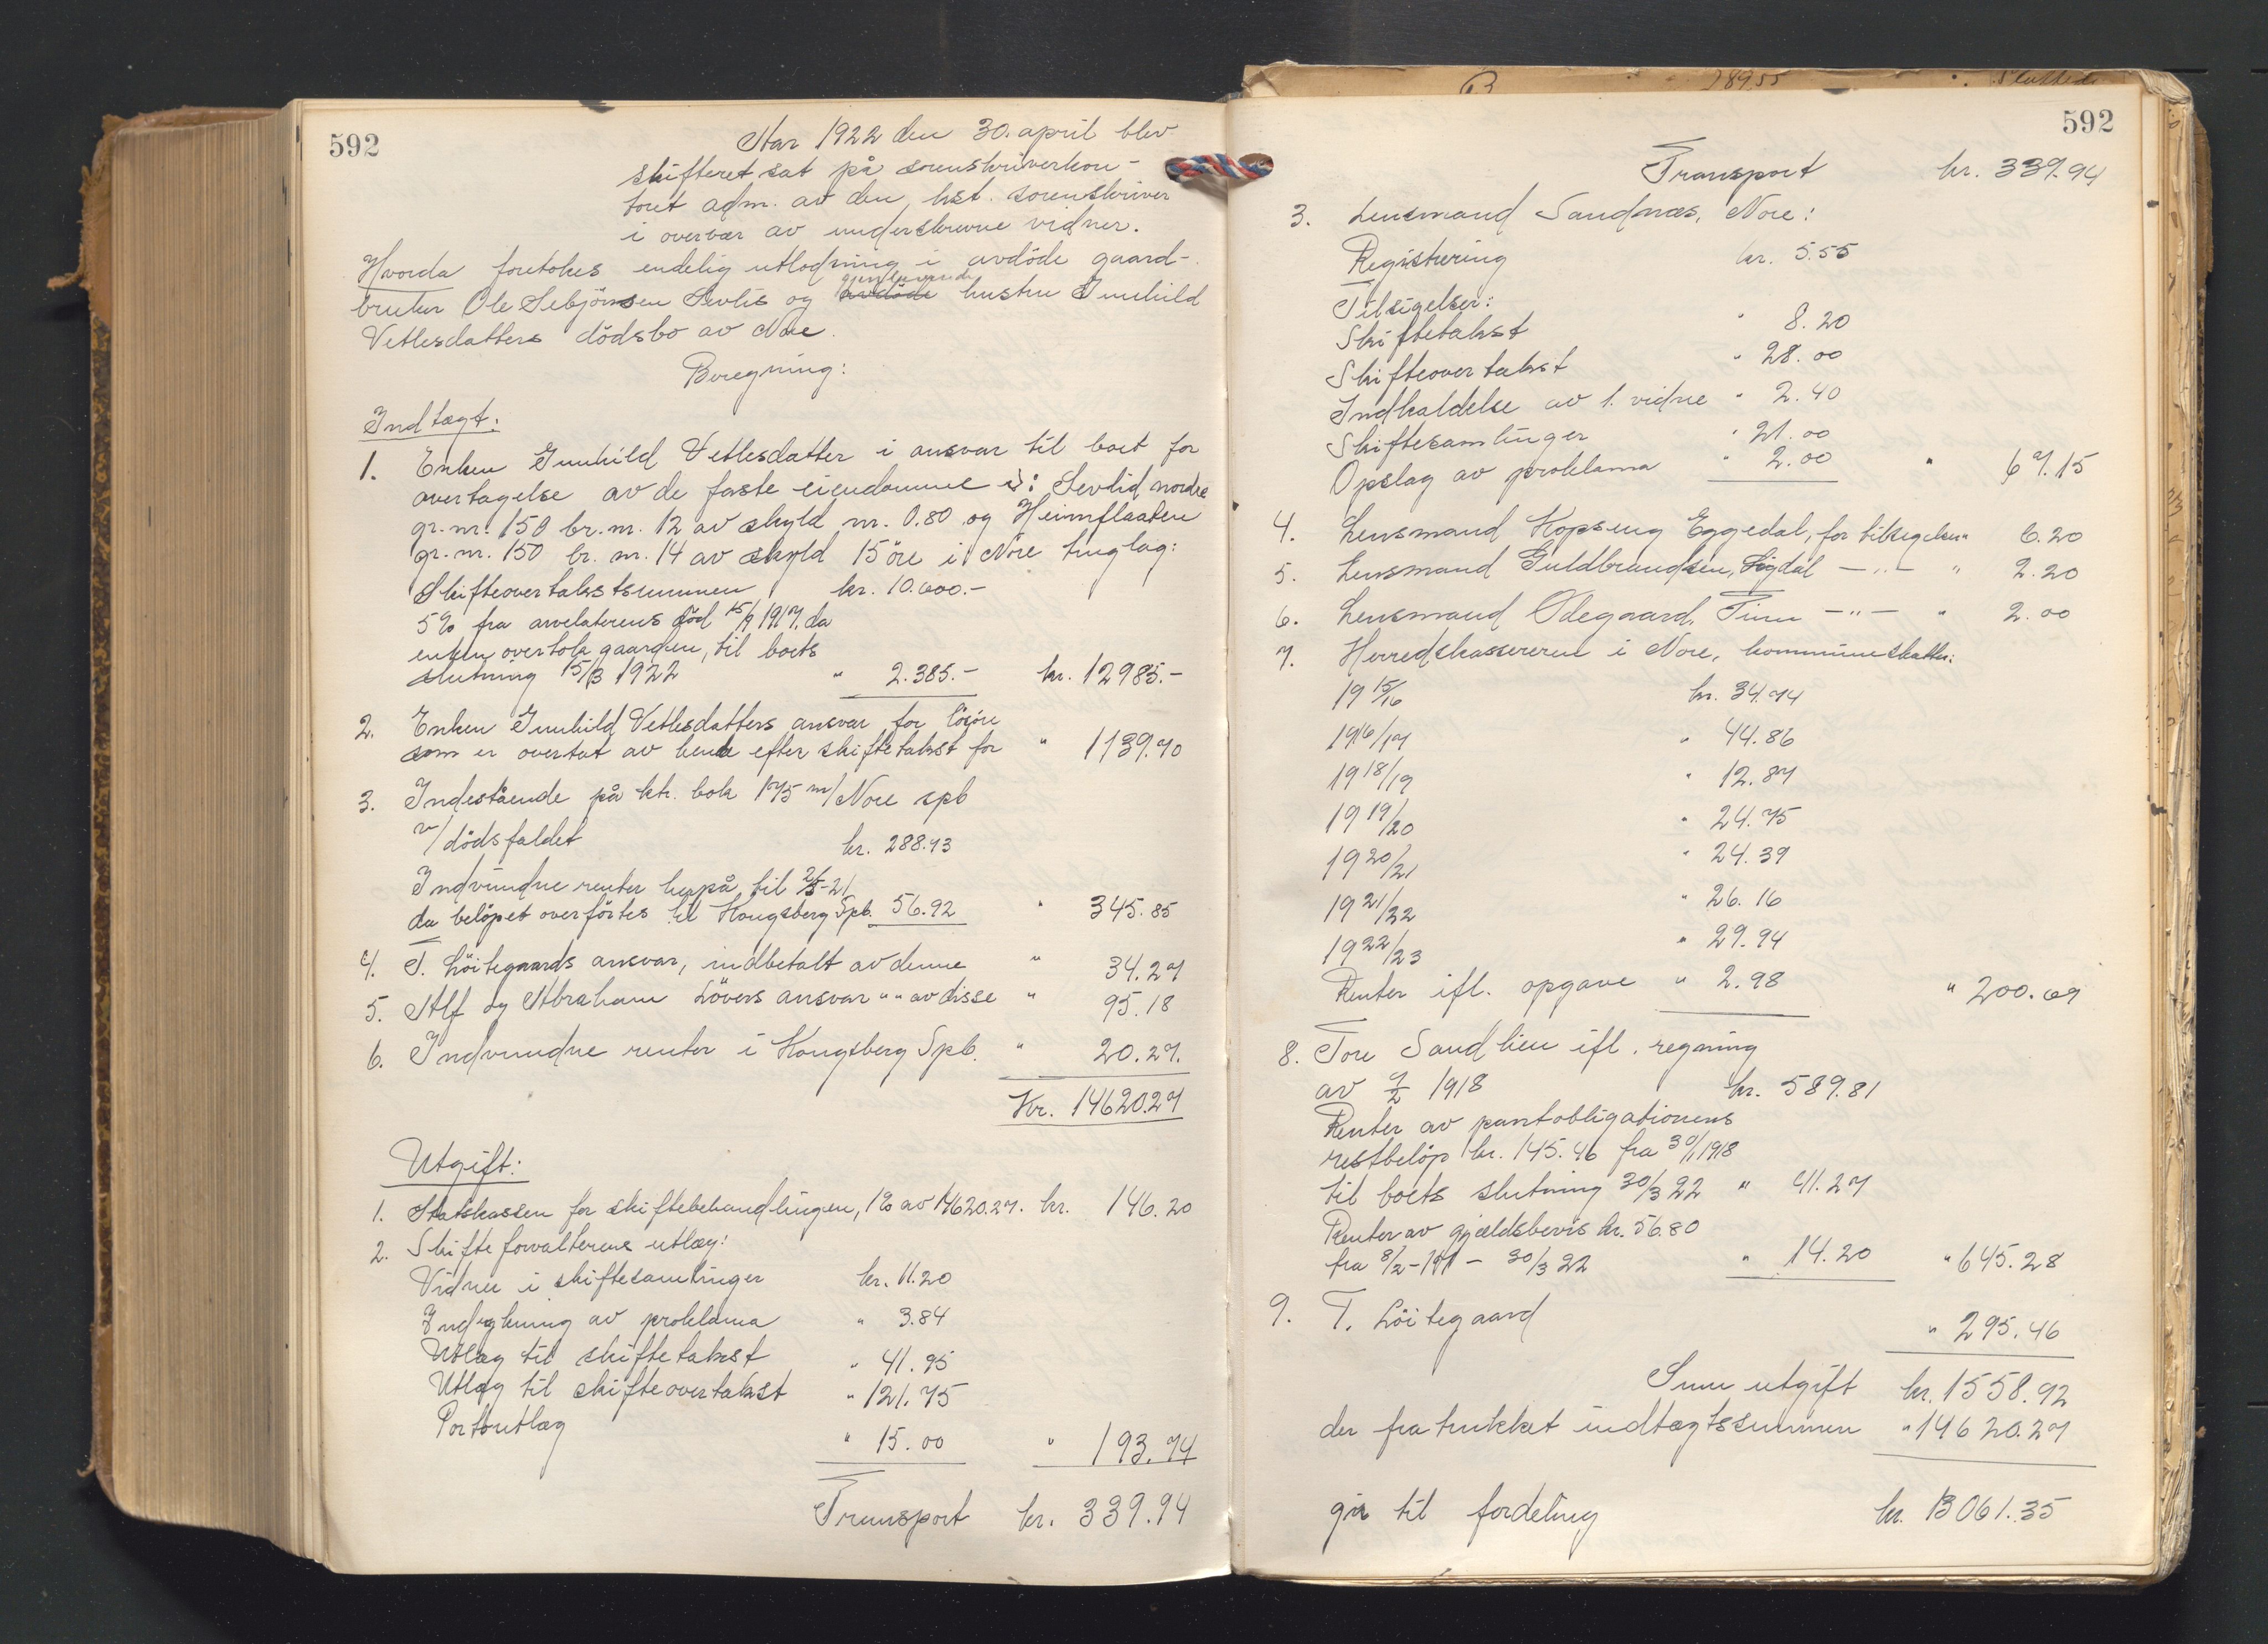 592
Aar 1922 den 30. april blev
skifteret sat på sorenskriverkon-
toret adm. av den kst. sorenskriver
i overvær av underskrevne vidner.
Hvorda foretokes endelig utlodning i avdöde gaard-
bruker Ole Sebjörnsen Sevlis og gjenlevende hustru Gunhild
Vetlesdatters dödsbo av Nore.
Beregning:
Indtægt:
1. Enken Gunhild Vetlesdatter i ansvar til boet for
overtagelse av de faste eiendomme o: Sevlid nordre
gr.nr. 150 br.nr. 12 av skyld m. 0.80 og Heimflaaten
gr.nr. 150 br.nr. 14 av skyld 15 öre i Nore tinglag:
Skifteovertakstsummen kr. 10.600.-
5% fra arvelaterens död 15/9 1917, da
enken overtok gaarden, til boets
slutning 15/3 1922 " 2.385.- kr. 12985.-
2. Enken Gunhild Vetlesdatters ansvar for lösöre
som er overtat av hende efter skiftetakst for " 1139.70
3. Indestående på ktr. bok 175 m/ Nore spb
v/ dödsfaldet kr. 288.93
Indvundne renter herpå til 2/5-21
da belöpet overförtes til Kongsberg Spb. 56.92 " 345.85
4. T. Löitegaards ansvar, indbetalt av denne " 34.27
5. Alf og Abraham Lövers ansvar " " av disse " 95.18
6. Indvundne renter i Kongsberg Spb. " 20.27.
Kr. 14620.27
Utgift:
1. Statskassen for skiftebehandlingen, 1% av 14620.27. kr. 146.20
2. Skifteforvalterens utlæg:
Vidner i skiftesamlinger kr. 11.20
Indrykning av proklama " 3.84
Utlæg til skiftetakst " 41.95
Utlæg til skifteovertakst " 121.75
Portoutlæg " 15.00 " 193.74
Transport kr. 339.94
592
Transport kr. 339.94
3. Lensmand Sandnæs, Nore:
Registrering kr. 5.55
Tilsigelser:
Skiftetakst " 8.20
Skifteovertakst " 28.00
Indkaldelse av 1. vidne " 2.40
Skiftesamlinger " 21.00
Opslag av proklama " 2.00 " 67.15
4. Lensmand Kopseng Eggedal, for tilsigelser " 6.20
5. Lensmand Guldbrandsen, Sigdal -"- " 2.20
6. Lensmand Ödegaard, Tinn -"- " 2.00
7. Herredskassereren i Nore, kommuneskatter:
1915/16 kr. 34.74
1916/17 " 44.86
1918/19 " 12.87
1919/20 " 24.75
1920/21 " 24.39
1921/22 " 26.16
1922/23 " 29.94
Renter ifl. opgave " 2.98 " 200.69
8. Tore Sandlien ifl. regning
av 9/2 1918 kr. 589.81
Renter av pantobligationens
restbelöp kr. 145.46 fra 30/1 1918
til boets slutning 30/3 22 " 41.27
Renter av gjældsbevis kr. 56.80
fra 8/2-17 - 30/3 22 " 14.20 " 645.28
9. T. Löitegaard " 295.46
Sum utgift kr. 1558.92
der fratrukket indtægtssummen " 14620.27
gir til fordeling kr. 13061.35